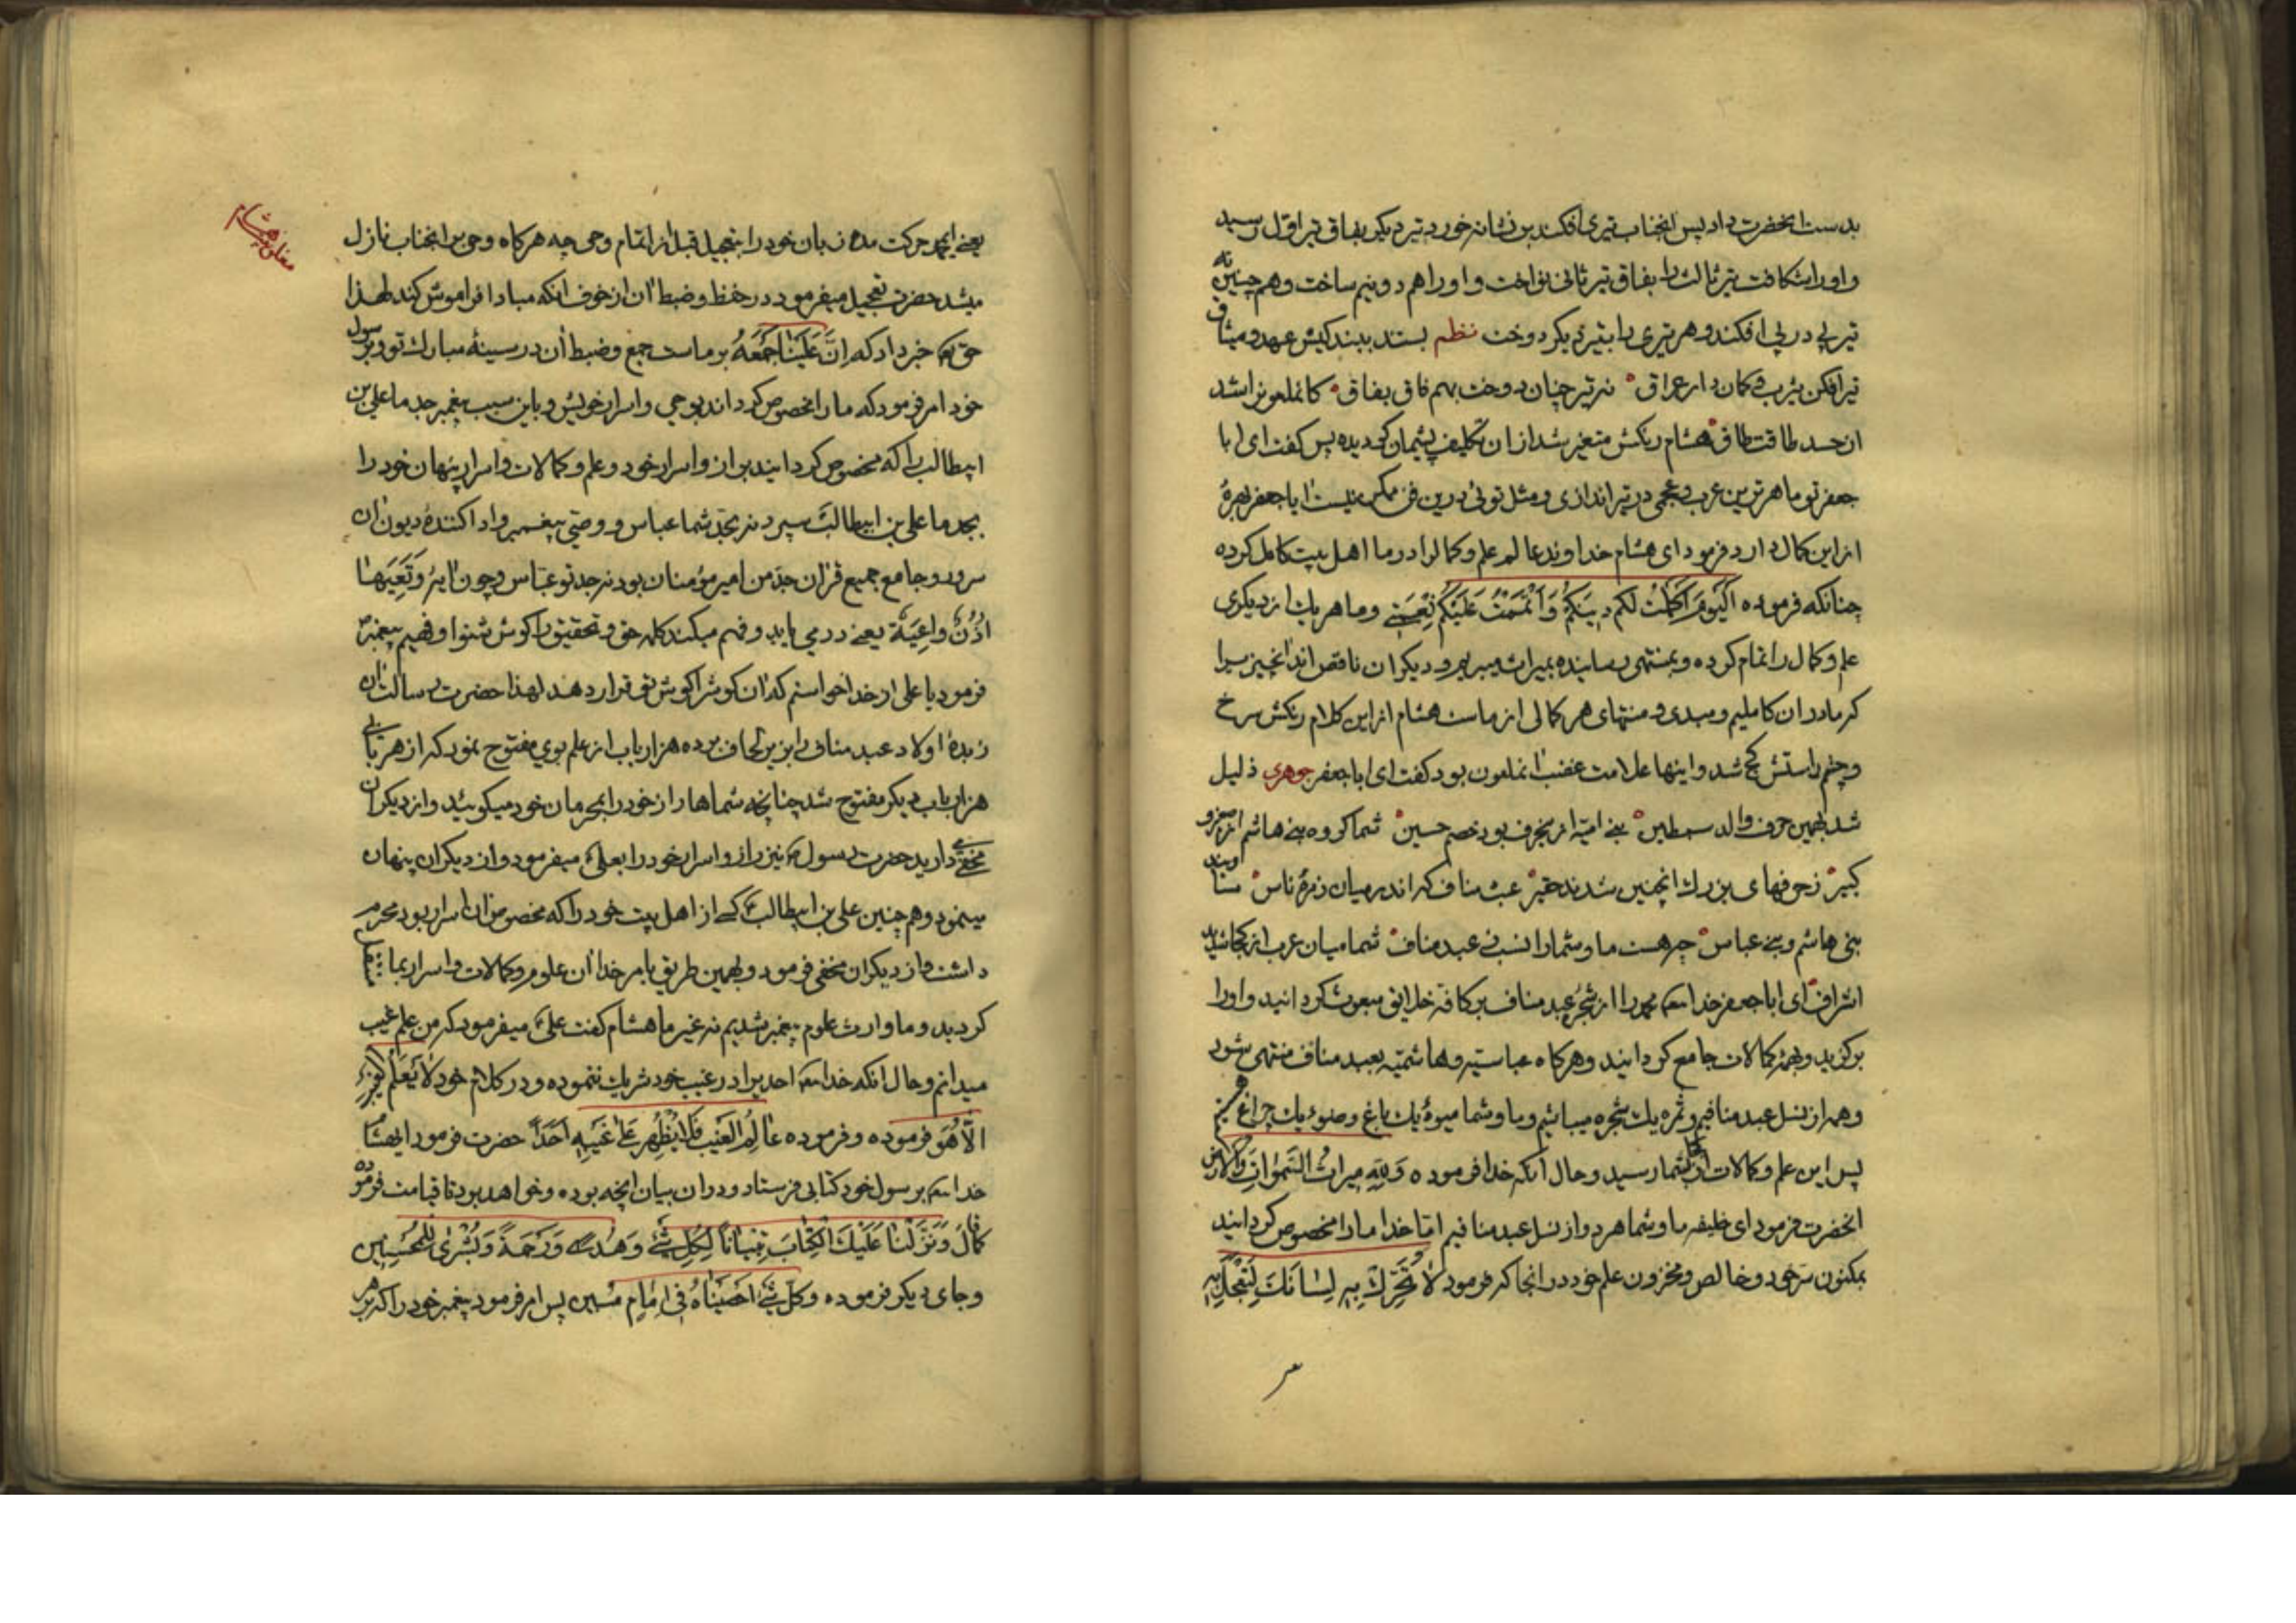 بدست انحضرت داد پس انجناب تیری افکند بر نشانه خورد تیر دیکر بفاق تیر اول رسید
و اورا شکافت تیر ثالث را بفاق تیر ثانی نواخت و اورا هم دو نیم ساخت و هم چنین نه
تیر پی در پی افکند و هر تیری را بتیر دیکر دوخت نظم بستد ببند کیش عهد و میثاق
تیر افکن یثرب و کمان دار عراق نه تیر چنان دوخت بهم فاق بفاق کانملعونرا شد
از حسد طاقت طاق هشام رنکش متغیر شد از ان تکلیف پشیمان کردیده پس کفت ای ابا
جعفر تو ماهرترین عرب و عجمی در تیر اندازی و مثل توئی درین فن ممکن نیست ایا جعفر بهرهٔ
از این کمال دارد فرمود ای هشام خداوند عالم علم و کمالرا در ما اهل بیت کامل کرده
چنانکه فرموده اَلْیَوْمَ اَکْمَلْتُ لَکُم دینَکُمْ وَاَتْمَمْتُ عَلَیْکُمْ نِعْمَتی و ما هر یك از دیکری
علم و کمال را تمام کرده و بمنتهی رسانیده بمیراث میبریم و دیکران ناقص اند انچیز میرا
که ما در ان کاملیم و مبدی و منتهای هر کمالی از ماست هشام از این کلام رنکش سرخ
و چشم راستش کج شد و اینها علامت غضب انملعون بود کفت ای ابا جعفر جوهری ذلیل
شد بهمین حرف والد سبطین بنی امیه از ینحرف بود خصم حسین شما کروه بنی هاشم از صغیر و
کبیر زحرفهای بزرك انچنین شدند حقیر عبث مناف که اند میان زمره ناس
بنی هاشم و بنی عباس چه هست ما و شما را نسب ز عبد مناف شما میان عرب از کجا شدید
اشراف ای ابا جعفر خدایتعه محمد را از شجره عبد مناف بر کافه خلایق مبعوث کردانید و اورا
برکزید و بهمه کمالات جامع کردانید و هرکاه عباسیه و هاشمیه بعبد مناف منتهی شود
و همه از نسل عبد منافیم و ثمره یك شجره میباشیم و ما و شما میوهٔ یك باغ و ضوء یك چراغ هستیم
پس این علم و کمالات از کجا بشما رسید و حال انکه خدا فرموده وَلِلّهِ میراثُ السَّمواتِ وَالْاَرْض
انحضرت فرمود ای خلیفه ما و شما هر دو از نسل عبد منافیم اما خدا ما را مخصوص کردانید
بمکنون سر خود و خالص و مخزون علم خود در انجا که فرمود لا تُحَرِّكْ بِهِ لِسانَكَ لِتَعْجَلَ بِهِ
یعنی ایمحمد حرکت مده زبان خود را بتعجیل قبل از اتمام وحی چه هرکاه وحی بر انجناب نازل
میشد حضرت تعجیل میفرمود در حفظ و ضبط ان از خوف انکه مبادا فراموش کند لهذا
حق تعه خبر داد که اِنَّ عَلَیْنا جَمْعَهُ بر ماست جمع و ضبط ان در سینهٔ مبارك تو و برسول
خود امر فرمود که ما را مخصوص کرداند بوحی و اسرار خویش و باین سبب پیغمبر جد ما علی بن
ابیطالب را که مخصوص کردانید براز و اسرار خود و علم و کمالات و اسرار پنهان خود را
بجد ما علی بن ابیطالب سپرد نه بجد شما عباس و وصی پیغمبر و ادا کنندهٔ دیون ان
سرور و جامع جمیع قران جد من امیر مؤمنان بود نه جد تو عباس و چون ایهٔ وَتَعِیَها
اُذُنٌ واعِیَةٌ یعنی در می یابد و فهم میکند کلمه حق و تحقیق را کوش شنوا و فهیم پیغمبر
فرمود یا علی از خدا خواستم که ان کوشرا کوش تو قرار دهد لهذا حضرت رسالت ان
زبدهٔ اولاد عبد مناف را بزیر لحاف برده هزار باب از علم بوی مفتوح نمود که از هر بابی
هزار باب دیکر مفتوح شد چنانچه شماها راز خود را بمحرمان خود میکویید و از دیکران
مخفی دارید حضرت رسول نیز راز و اسرار خود را بعلی میفرمود و از دیکران پنهان
مینمود و هم چنین علی بن ابیطالب کسی از اهل بیت خود را که مخصوص ان اسرار بود محرم
داشت و از دیکران مخفی فرمود و بهمین طریق بامر خدا ان علوم و کمالات و اسرار بما
کردید و ما وارث علوم پیغمبر شدیم نه غیر ما هشام کفت علی میفرمود که من علم غیب
میدانم و حال انکه خدایتعه احدیرا در غیب خود شریك ننموده و در کلام خود لا یَعْلَمُ الْغَیْبَ
اِلّا هُوَ فرموده و فرموده عالِمُ الْغَیْبِ فَلا یُظْهِرُ عَلی غَیْبِهِ اَحَداً حضرت فرمود ایهشام
خدایتعه برسول خود کتابی فرستاد و در ان بیان انچه بوده و خواهد بود تا قیامت فرموده
کما قالَ وَنَزَّلْنا عَلَیْكَ الْکِتابَ تِبْیاناً لِکُلِّ شَیْءٍ وَهُدیً وَرَحْمَةً وَبُشْری لِلْمُحْسِنین
و جای دیکر فرموده وکُلَّ شَیْءٍ اَحْصَیْناهُ فی اِمامٍ مُبین پس امر فرمود پیغمبر خود را که